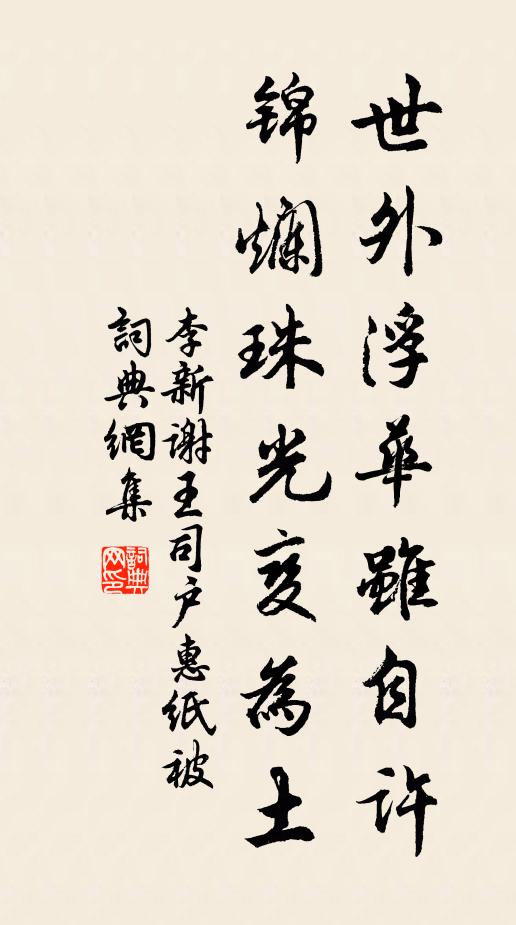 世外浮華雖自許
錦爛珠光变為土
李新謝王司户惠纸被
詞典網集
詞典
网印